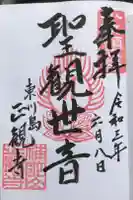 奉拝
令和三年
六月八日
聖観世音
東川島
正観寺